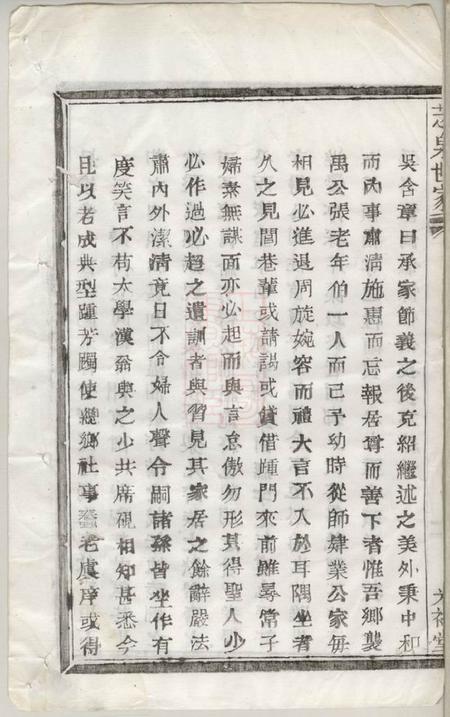 吳含章曰承家節義之後克紹繼述之美外秉中和
而內事肅淸施惠而忘報居尊而善下者惟吾鄉龔
萬公張老年伯一人而已予幼時從師肄業公家毎
相見必進退周旋婉容而禮大言不入於耳隅坐者
久之見閭巷輩或請謁或貸借踵門來前雖尋常子
婦素無謀面亦必起而與言怠傲勿形其得聖人少
必作過必趨之遺訓者與習見其家居之餘辭嚴法
肅內外潔淸竟日不令婦人聲令嗣諸孫皆坐作有
度笑言不苟太學漢翁與之少共席硯相知甚悉今
且以老成典型踵芳躅使纜鄉社事蠶老庠序或得